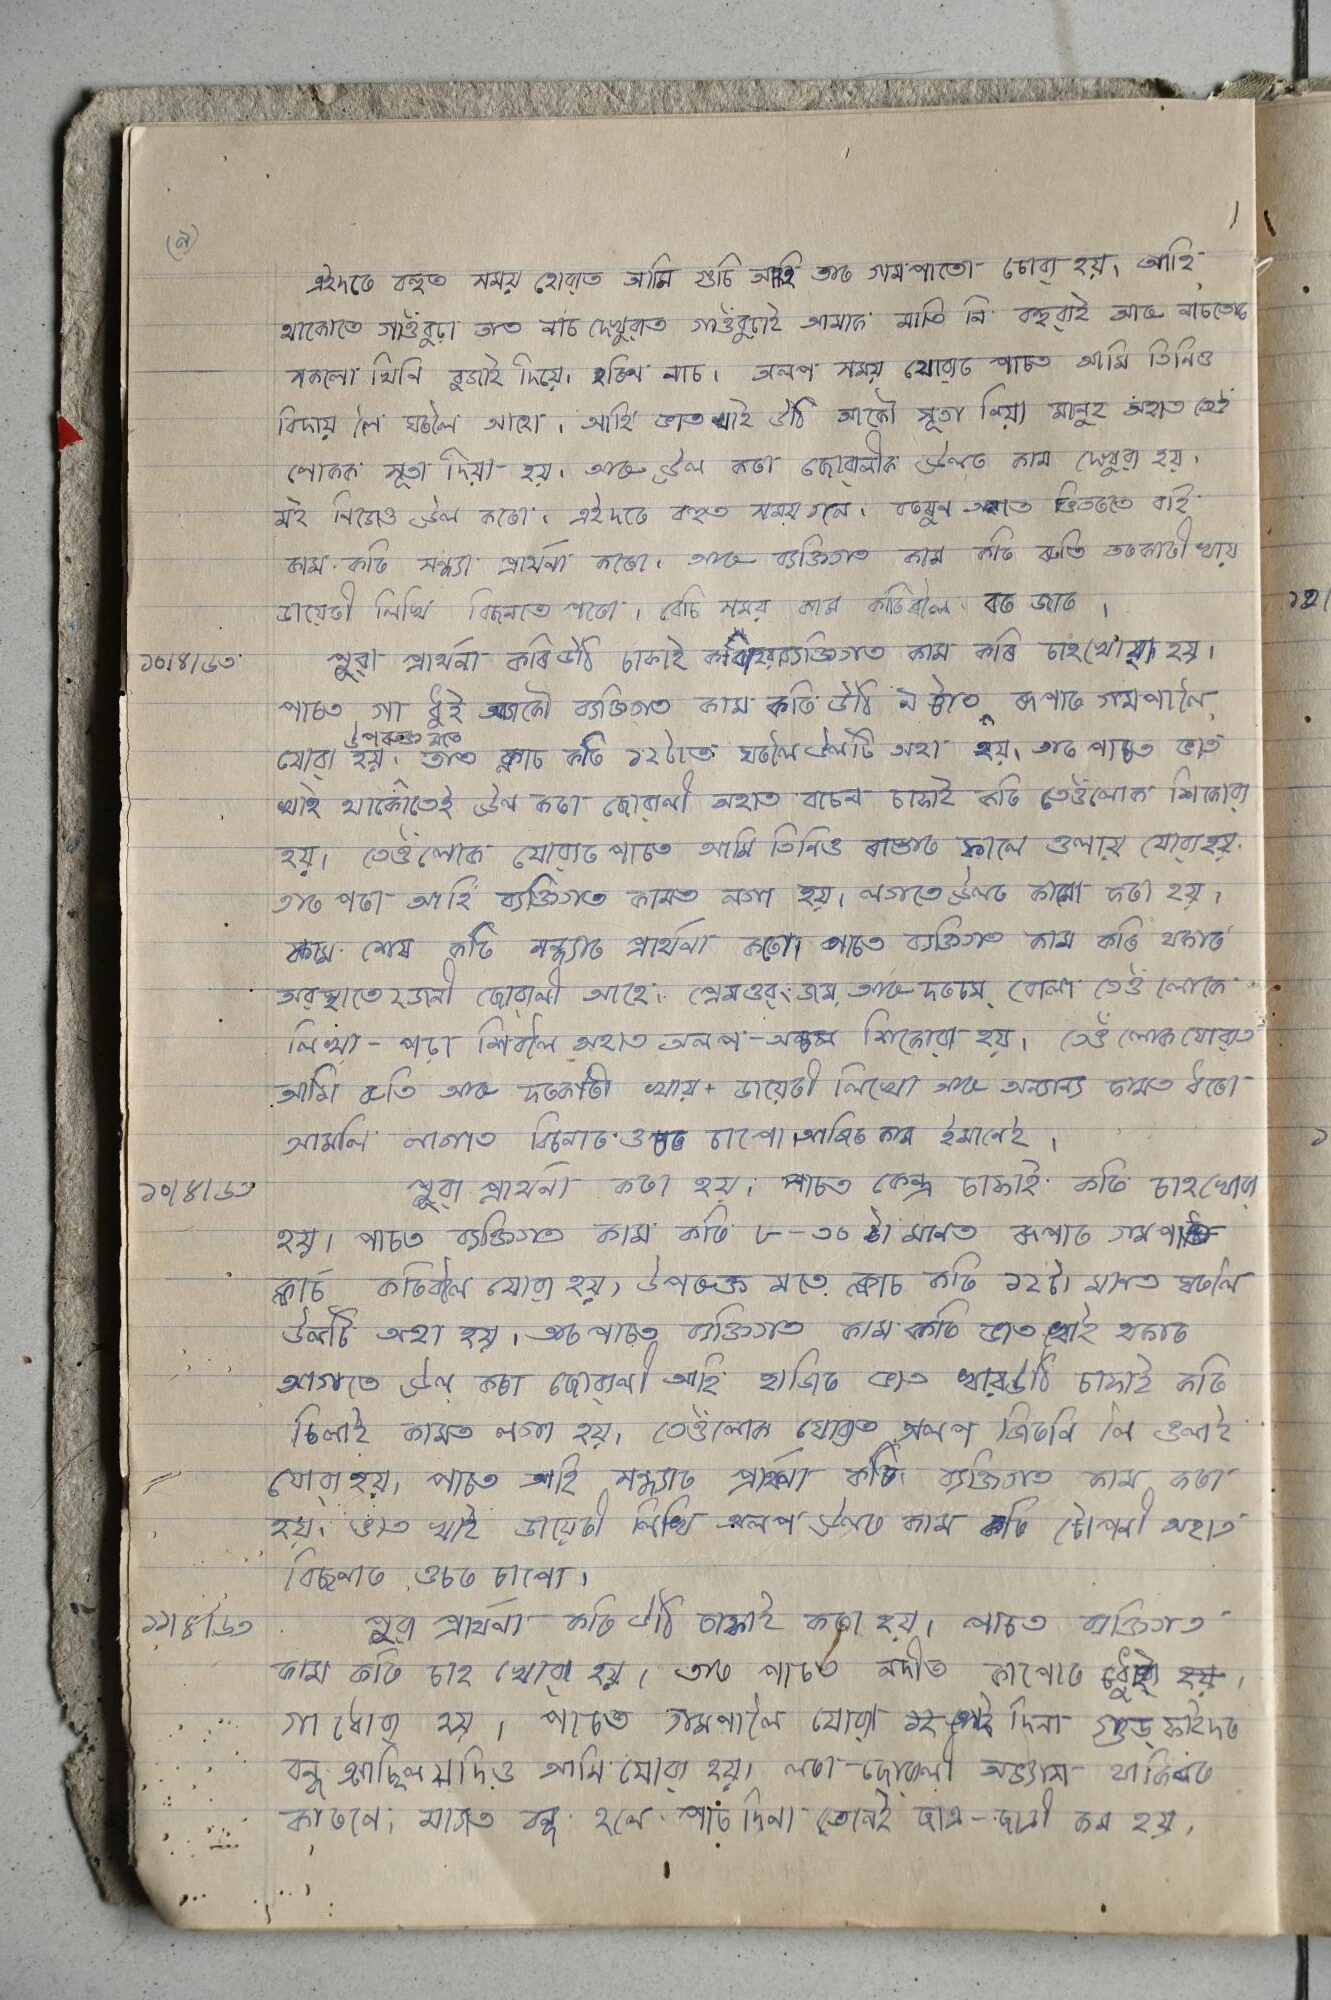 (৯)
এইদৰে বহুত সময় হোৱাত আমি গুচি আহি তাৰ গামপাতো চোৱা হয়। আহি
থাকোতে গাওঁবুঢ়া তাত নাচ দেখুৱাত গাওঁবুঢ়াই আমাক মাতি নি বহুৱাই আৰু নাচতোৰ
সকলো খিনি বুজাই দিয়ে। হৰিণ নাচ। অলপ সময় যোৱাৰ পাচত আমি তিনিও
বিদায় লৈ ঘৰলৈ আহো। আহি ভাত খাই উঠি আকৌ সূতা নিয়া মানুহ অহাত তেই
লোকক সূতা দিয়া হয়। আৰু ঊল কটা জোৱালীক ঊলৰ কাম দেখুৱা হয়।
মই নিজেও ঊল কৰো। এইদৰে বহুত সময় গলে। বৰষুণ অহাত ভিতৰতে বাই
কাম কৰি সন্ধ্যা প্ৰাৰ্থনা কৰো। আৰু ব্যক্তিগত কাম কৰি ৰুতি তৰকাৰী খায়
ডায়েৰী লিখি বিচনাতে পৰো। বেচি সময় কাম কৰিবলৈ বৰ জাৰ।
১০/৪/৬৩ পুৱা প্ৰাৰ্থনা কৰি উঠি চাফাই কৰা হয় ব্যক্তিগত কাম কৰি চাহ খোৱা হয়।
পাচত গা ধুই আকৌ ব্যক্তিগত কাম কৰি উঠি ৯ টাত ৰূপাৰ গামপালৈ
উপৰুক্ত মতে
যোৱা হয়। তাত ক্লাচ কৰি ১২টাত ঘৰলৈ উলটি অহা হয়। তাৰ পাচত ভাত
খাই থাকোতেই ঊল কটা জোৱালী অহাত বাচন চাফাই কৰি তেওঁলোক শিকোৱা
হয়। তেওঁলোক যোৱাৰ পাচত আমি তিনিও ৰাস্তাৰ ফালে ওলায় যোৱা হয়
তাৰ পৰা আহি ব্যক্তিগত কামত লগা হয়। লগতে ঊলৰ কামো কৰা হয়।
কাম শেষ কৰি সন্ধ্যাৰ প্ৰাৰ্থনা কৰো। পাচত ব্যক্তিগত কাম কৰি থকাৰ
অৱস্থাতে ২জনী জোৱালী আহে। আৰু বোলা তেওঁ লোকে
লিখা-পঢ়া শিকিবলৈ অহাত অলপ-অচৰপ শিকোৱা হয়। তেওঁ লোক যোৱাত
আমি ৰুতি আৰু তৰকাৰী খায় ডায়েৰী লিখো আৰু অন্যান্য কামত ধৰো
আমনি লাগাত বিচনাৰ ওচৰ চাপো। আজিৰ কাম ইমানেই।
১০/৪/৬৩ পুৱা প্ৰাৰ্থনা কৰা হয়। পাচত কেন্দ্ৰ চাফাই কৰি চাহ খোৱা
হয়। পাচত ব্যক্তিগত কাম কৰি ৮-৩০ টা মানত ৰূপাৰ গামপাত
ক্লাচ কৰিবলৈ যোৱা হয়। উপৰুক্ত মতে ক্লাচ কৰি ১২টা মানত ঘৰলৈ
উলটি অহা হয়। তাৰ পাচত ব্যক্তিগত কাম কৰি ভাত খাই থকাৰ
আগতে ঊল কটা জোৱালী আহি হাজিৰ ভাত খায় উঠি চাফাই কৰি
চিলাই কামত লগা হয়। তেওঁলোক যোৱাত অলপ জিৰনি লৈ ওলাই
যোৱা হয়। পাচত আহি সন্ধ্যাৰ প্ৰাৰ্থনা কৰি ব্যক্তিগত কাম কৰা
হয়। ভাত খাই ডায়েৰী লিখি অলপ ঊলৰ কাম কৰি টোপনী অহাত
বিছনাৰ ওচৰ চাপো।
১১/৪/৬৩ পুৱা প্ৰাৰ্থনা কৰি উঠি চাফাই কৰা হয়। পাচত ব্যক্তিগত
কাম কৰি চাহ খোৱা হয়। তাৰ পাচত নদীত কাপোৰ ধোৱা হয়।
গা ধোৱা হয়। পাচত গামপালৈ যোৱা দিনা গুড্ ফ্ৰাইদৰ
বন্ধ আছিল যদিও আমি যোৱা হয়। লৰা-জোৱালী অভ্যাস থাকিবৰ
কাৰণে। মাজত বন্ধ হলে পাচ দিনা তেনেই ছাত্ৰ-ছাত্ৰী কম হয়।